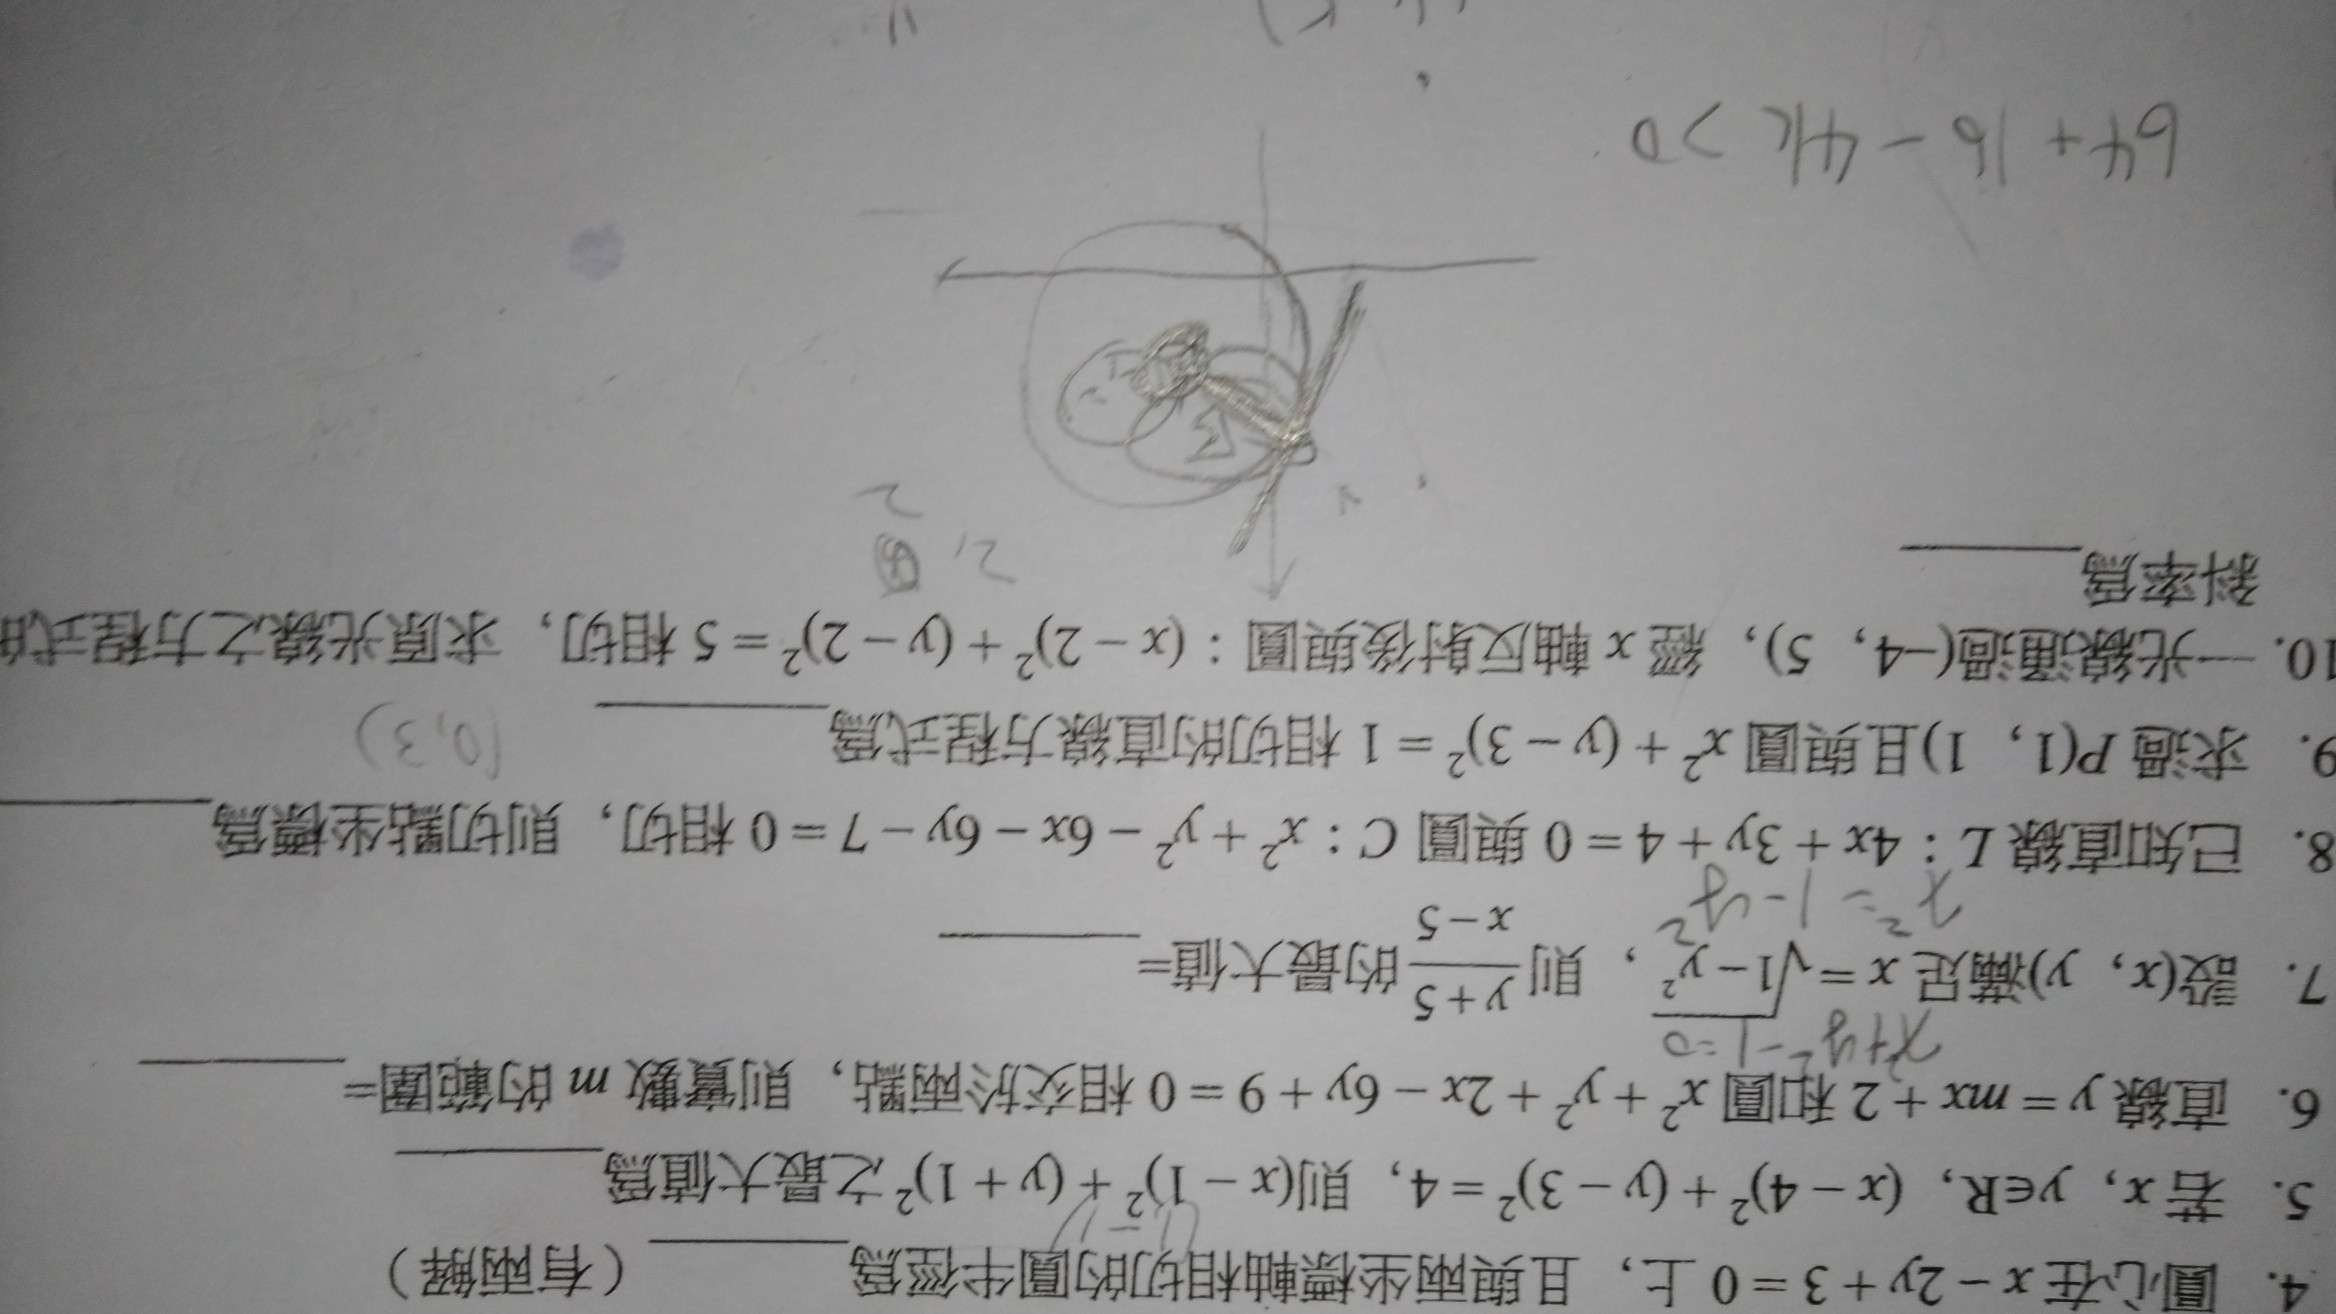 4. 圓心在 x − 2y + 3 = 0 上，且與兩坐標軸相切的圓半徑爲________（有兩解）
5. 若 x，y∈R，(x − 4)² + (y − 3)² = 4，則(x − 1)² + (y + 1)² 之最大值爲________
6. 直線 y = mx + 2 和圓 x² + y² + 2x − 6y + 9 = 0 相交於兩點，則實數 m 的範圍=________
x²+y²−1=0
7. 設(x，y)滿足 x = √(1 − y²)，則 (y + 5)/(x − 5) 的最大值=________
x² = 1−y²
8. 已知直線 L：4x + 3y + 4 = 0 與圓 C：x² + y² − 6x − 6y − 7 = 0 相切，則切點坐標爲________
9. 求過 P(1，1)且與圓 x² + (y − 3)² = 1 相切的直線方程式爲________
(0,3)
10. 一光線通過(−4，5)，經 x 軸反射後與圓：(x − 2)² + (y − 2)² = 5 相切，求原光線之方程式的
斜率爲________
2,
2
64 + 16 − 4k > 0